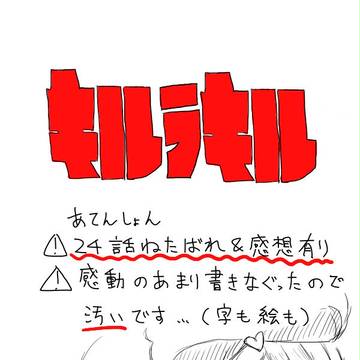 キルラキル
あてんしょん
⚠24話ねたばれ&感想有り
⚠感動のあまり書きなぐったので
汚いです…(字も絵も)